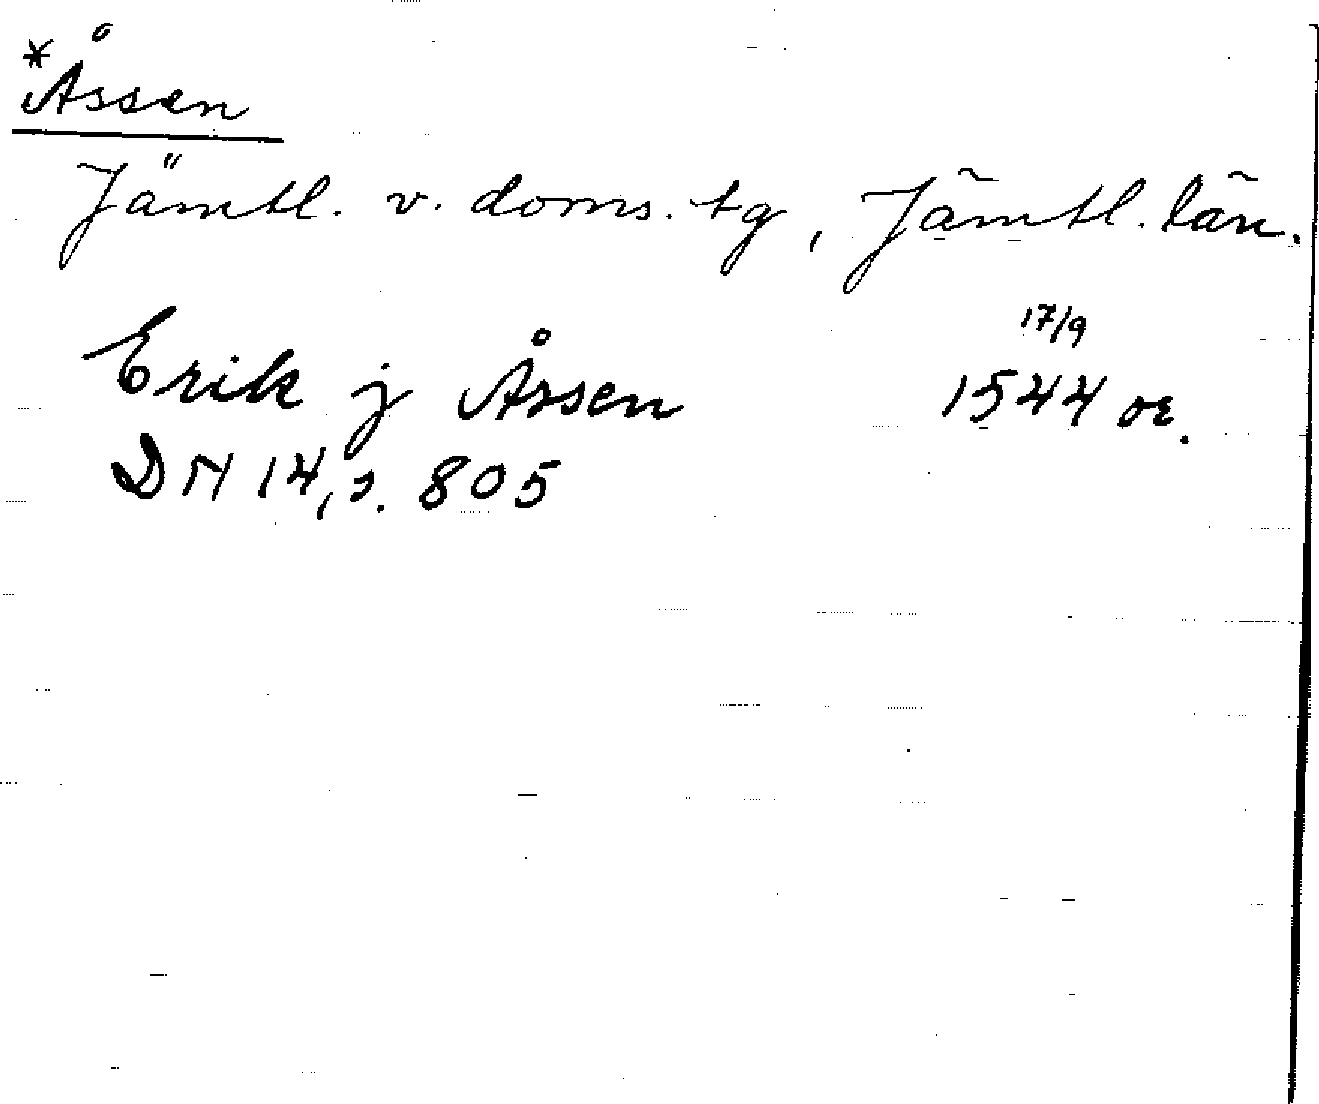 *Åssen
Jämtl. v. doms. tg, Jämtl. län.
Erik j Åssen 17/9 1544 or.
DN 14, s. 805